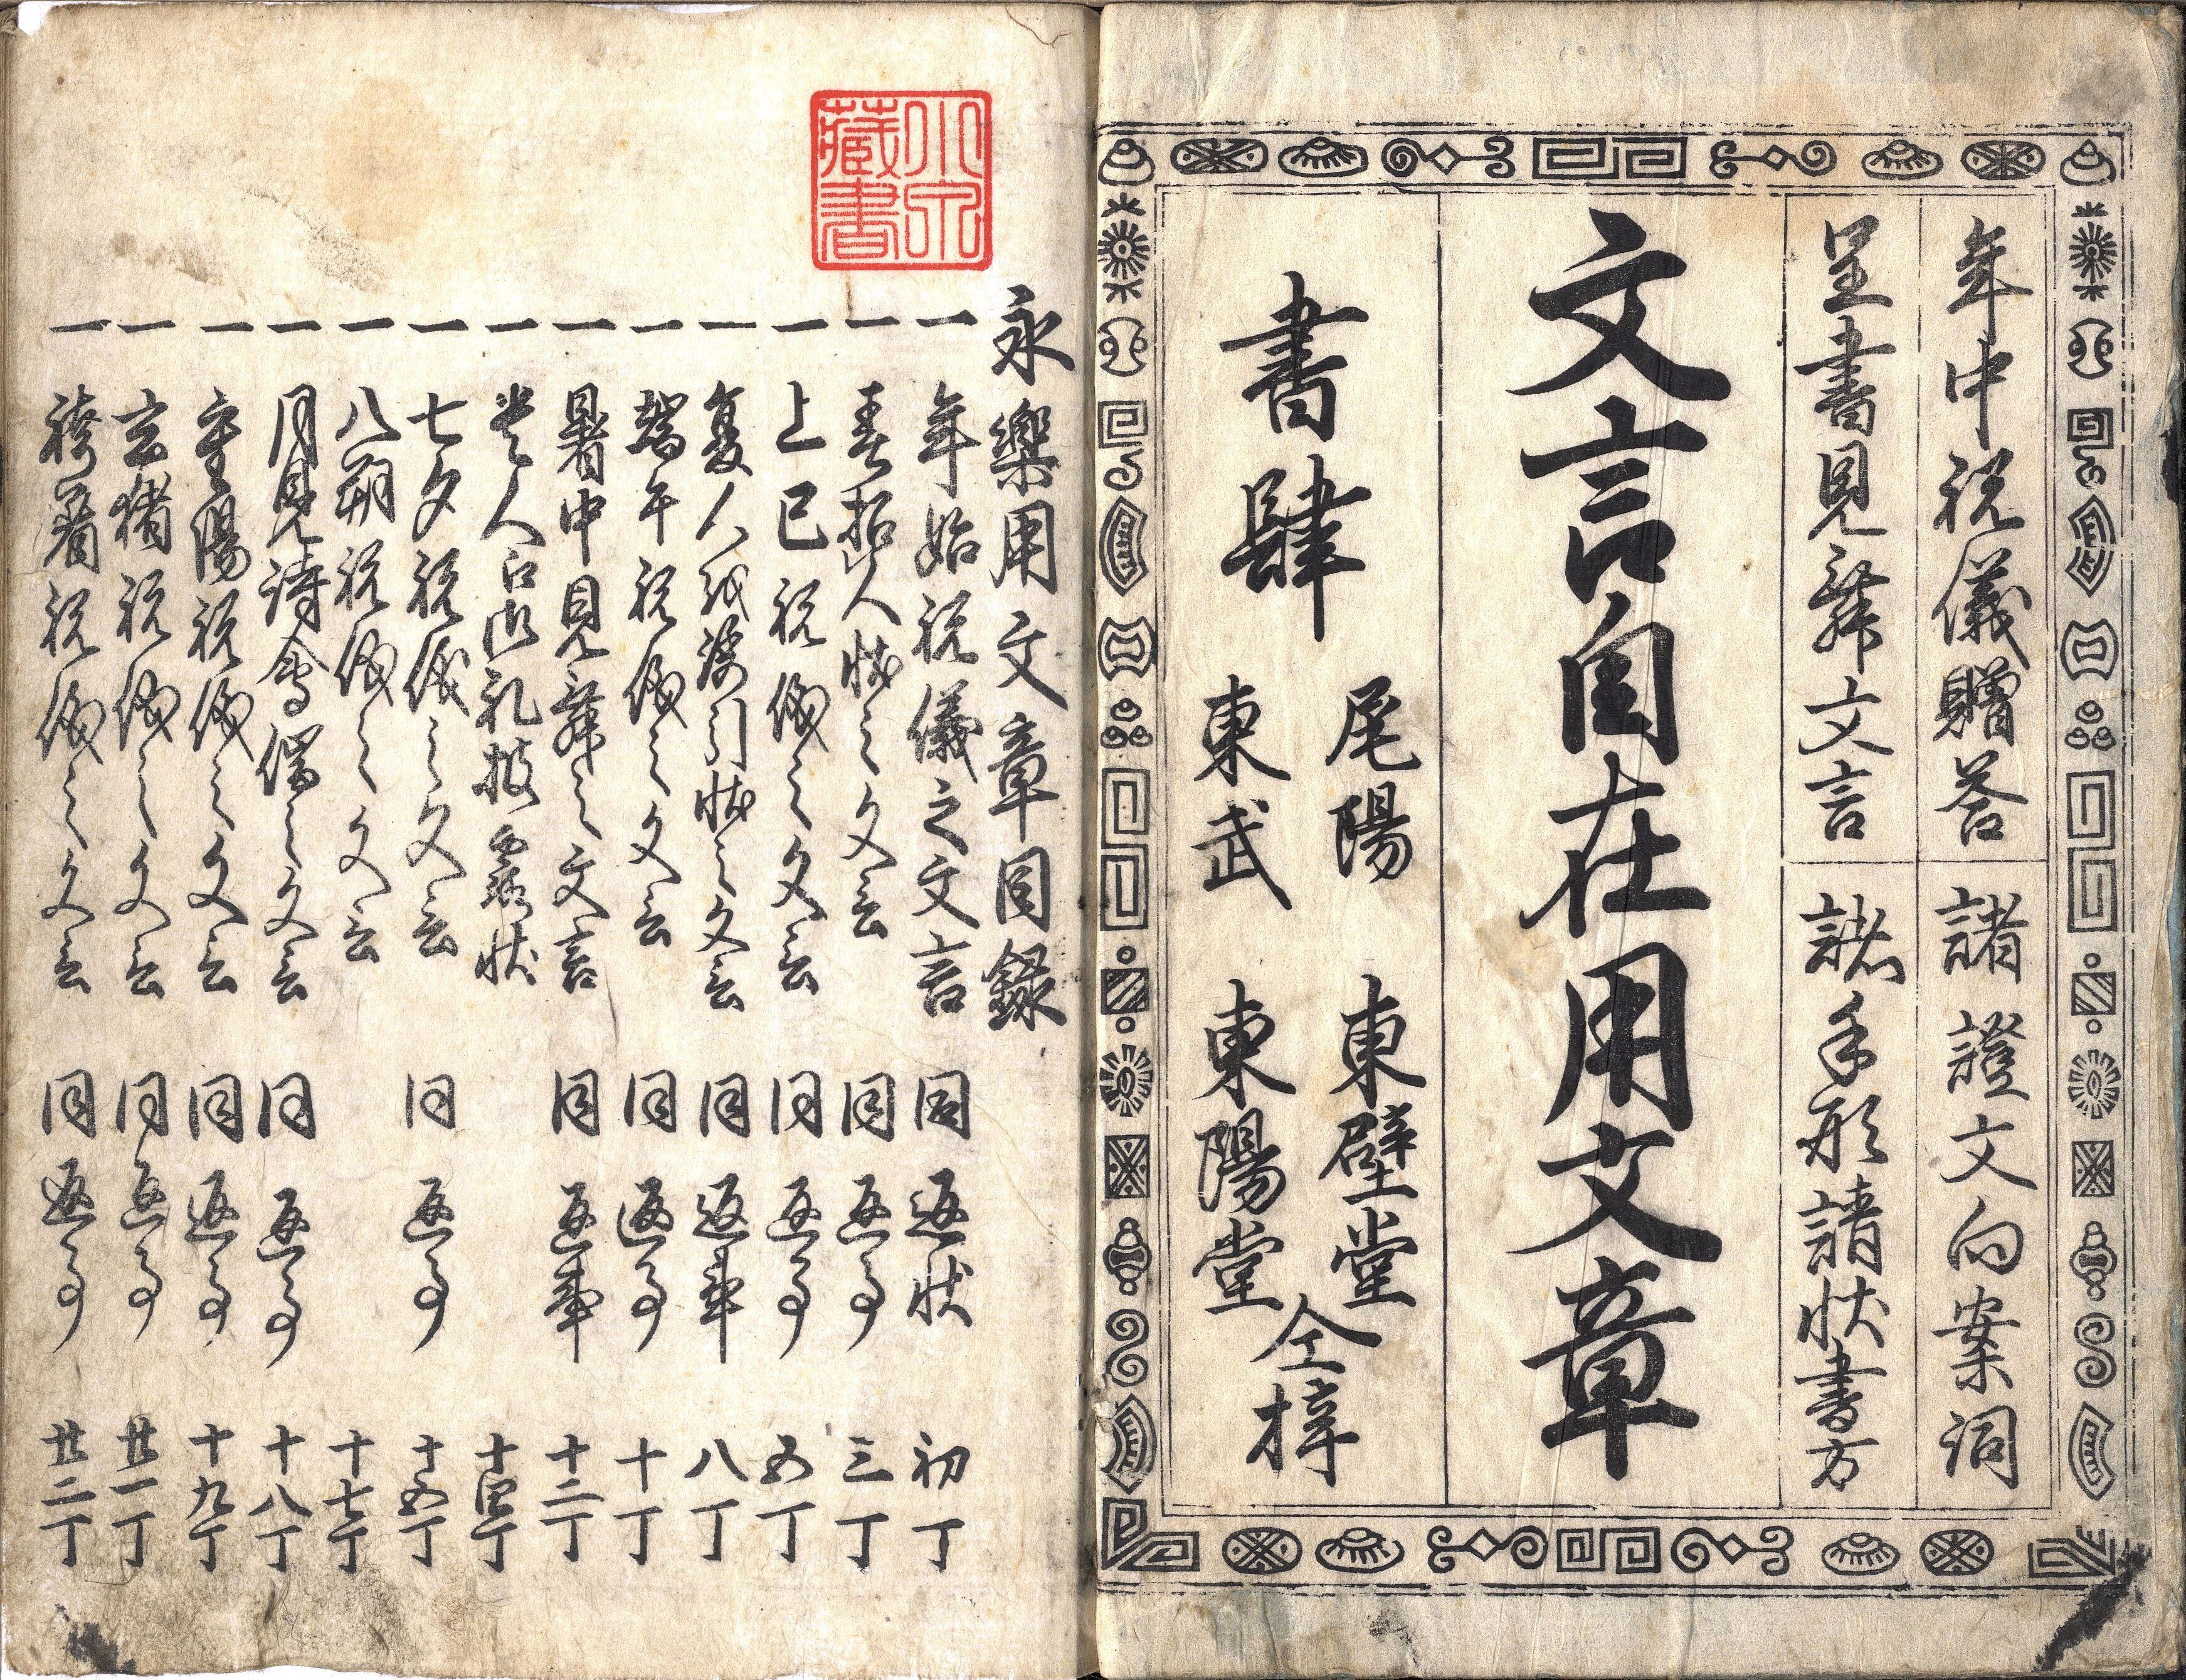 年中祝儀贈答
諸證文向案詞
呈書見舞文言
諸手形請状書方
文言自在用文章
書肆
尾陽 東壁堂
東武 東陽堂
仝梓
永樂用文章目録
一 年始祝儀之文言 同返状 初丁
一 春招人状之文言 同返事 三丁
一 上巳祝儀之文言 同返事 五丁
一 夏人 状之文言 同返事 八丁
一 端午祝儀之文言 同返事 十丁
一 暑中見舞之文言 同返事 十二丁
一 状 十四丁
一 七夕祝儀之文言 同返事 十五丁
一 八朔祝儀之文言 十七丁
一 月見詩會催之文言 同返事 十八丁
一 重陽祝儀之文言 同返事 十九丁
一 玄猪祝儀之文言 同返事 廿一丁
一 袴着祝儀之文言 同返事 廿二丁
藏書